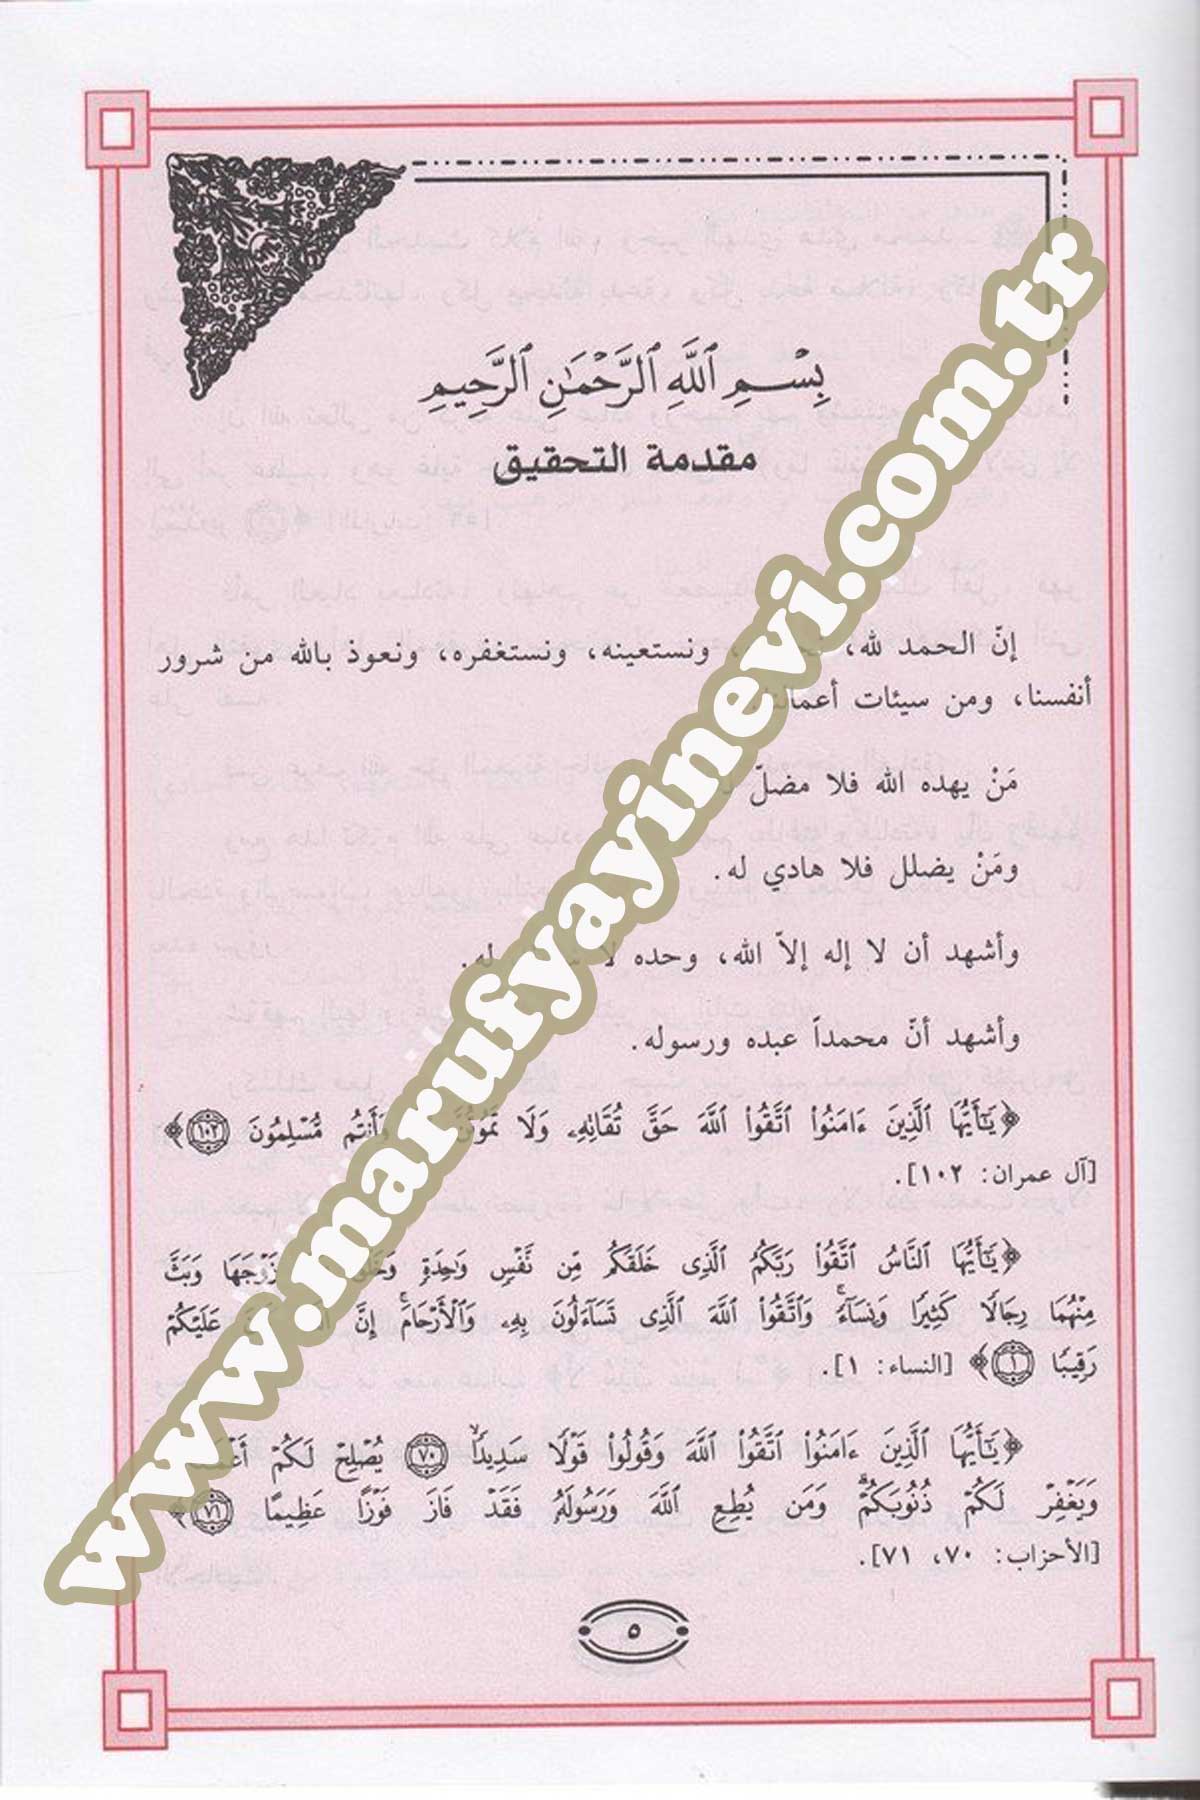 بِسْمِ ٱللَّهِ ٱلرَّحْمَٰنِ ٱلرَّحِيمِ
مقدمة التحقيق
إنّ الحمد لله، ونستعينه، ونستغفره، ونعوذ بالله من شرور
أنفسنا، ومن سيئات أعمالنا.
مَنْ يهده الله فلا مضلّ
ومَنْ يضلل فلا هادي له.
وأشهد أن لا إله إلاّ الله، وحده لا له.
وأشهد أنّ محمداً عبده ورسوله.
﴿يَٰٓأَيُّهَا ٱلَّذِينَ ءَامَنُوا۟ ٱتَّقُوا۟ ٱللَّهَ حَقَّ تُقَاتِهِۦ وَلَا تَمُوتُنَّ وَأَنتُم مُّسْلِمُونَ ١٠٢﴾
[آل عمران: ١٠٢].
﴿يَٰٓأَيُّهَا ٱلنَّاسُ ٱتَّقُوا۟ رَبَّكُمُ ٱلَّذِى خَلَقَكُم مِّن نَّفْسٍ وَٰحِدَةٍ وَخَلَقَ زَوْجَهَا وَبَثَّ
مِنْهُمَا رِجَالًا كَثِيرًا وَنِسَآءً ۚ وَٱتَّقُوا۟ ٱللَّهَ ٱلَّذِى تَسَآءَلُونَ بِهِۦ وَٱلْأَرْحَامَ ۚ إِنَّ عَلَيْكُمْ
رَقِيبًا ١﴾ [النساء: ١].
﴿يَٰٓأَيُّهَا ٱلَّذِينَ ءَامَنُوا۟ ٱتَّقُوا۟ ٱللَّهَ وَقُولُوا۟ قَوْلًا سَدِيدًا ٧٠ يُصْلِحْ لَكُمْ
وَيَغْفِرْ لَكُمْ ذُنُوبَكُمْ ۗ وَمَن يُطِعِ ٱللَّهَ وَرَسُولَهُۥ فَقَدْ فَازَ فَوْزًا عَظِيمًا ٧١﴾
[الأحزاب: ٧٠، ٧١].
٥
www.marufyayinevi.com.tr